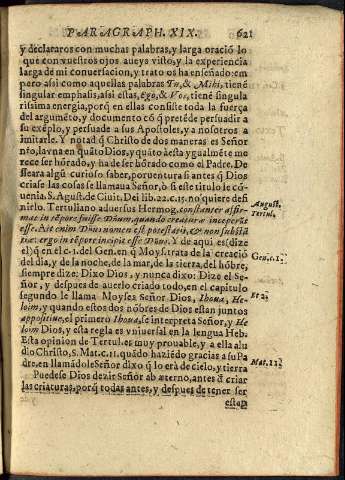 PARAGRAPH. XIX. 621
y declararos con muchas palabras, y larga oració lo
que con vuestros ojos aueys visto, y la experiencia
larga de mi conuersacion, y trato os ha enseñado: em
pero assi como aquellas palabras Tu, & Mihi, tiené
singular emphasis, assi estas, Ego, & Vos, tiené singula
rissima energia, porq̃ en ellas consiste toda la fuerça
del argumẽto, y documento có q̃ pretẽde persuadir a
su exẽplo, y persuade a sus Apostoles, y a nosotros a
imitarle. Y notad q̃ Christo de dos maneras es Señor
nro, la vna en quãto Dios, y quãto à esta ygualmẽte me
rece ser hórado, y ha de ser hórado como el Padre. De
ssearà algũ curioso saber, por ventura si antes q̃ Dios
criase las cosas se llamaua Señor, ò si este titulo le có-
uenia. S. Agust. de Ciuit. Dei lib. 22. c. 15. no quiere defi
nirlo. Tertuliano aduersus Hermog. constanter affir-
mat in tẽpore fuisse Dñum, quando creaturæ inceperũt
esse. Ait enim Dñus nomen est potestatis, & non substã
tiæ: ergo in tẽpore incipit esse Dñus. Y de aqui es (dize
el) q̃ en el c. 1. del Gen. en q̃ Moys. trata de la creació
del dia, y de la noche, de la mar, de la tierra, del hóbre,
siempre dize: Dixo Dios, y nunca dixo: Dize el Se-
ñor, y despues de auerlo criado todo, en el capitulo
segundo le llama Moyses Señor Dios, Ihoua, He-
loim, y quando estos dos nóbres de Dios estan juntos
appositiue, el primero Ihoua, se interpreta Señor, y He
loim Dios, y esta regla es vniuersal en la lengua Heb.
Esta opinion de Tertul. es muy prouable, y a ella alu
dio Christo, S. Mat. c. 11. quãdo haziẽdo gracias a su Pa
dre, en llamãdole Señor dixo q̃ lo erà de cielo, y tierra
Puedese Dios dezir Señor ab æterno, antes d̃ criar
las criaturas, porq̃ todas antes, y despues de tener ser
estan
August.
Tertus.
Gen. c. 1.
Et 2.
Mat. 11.